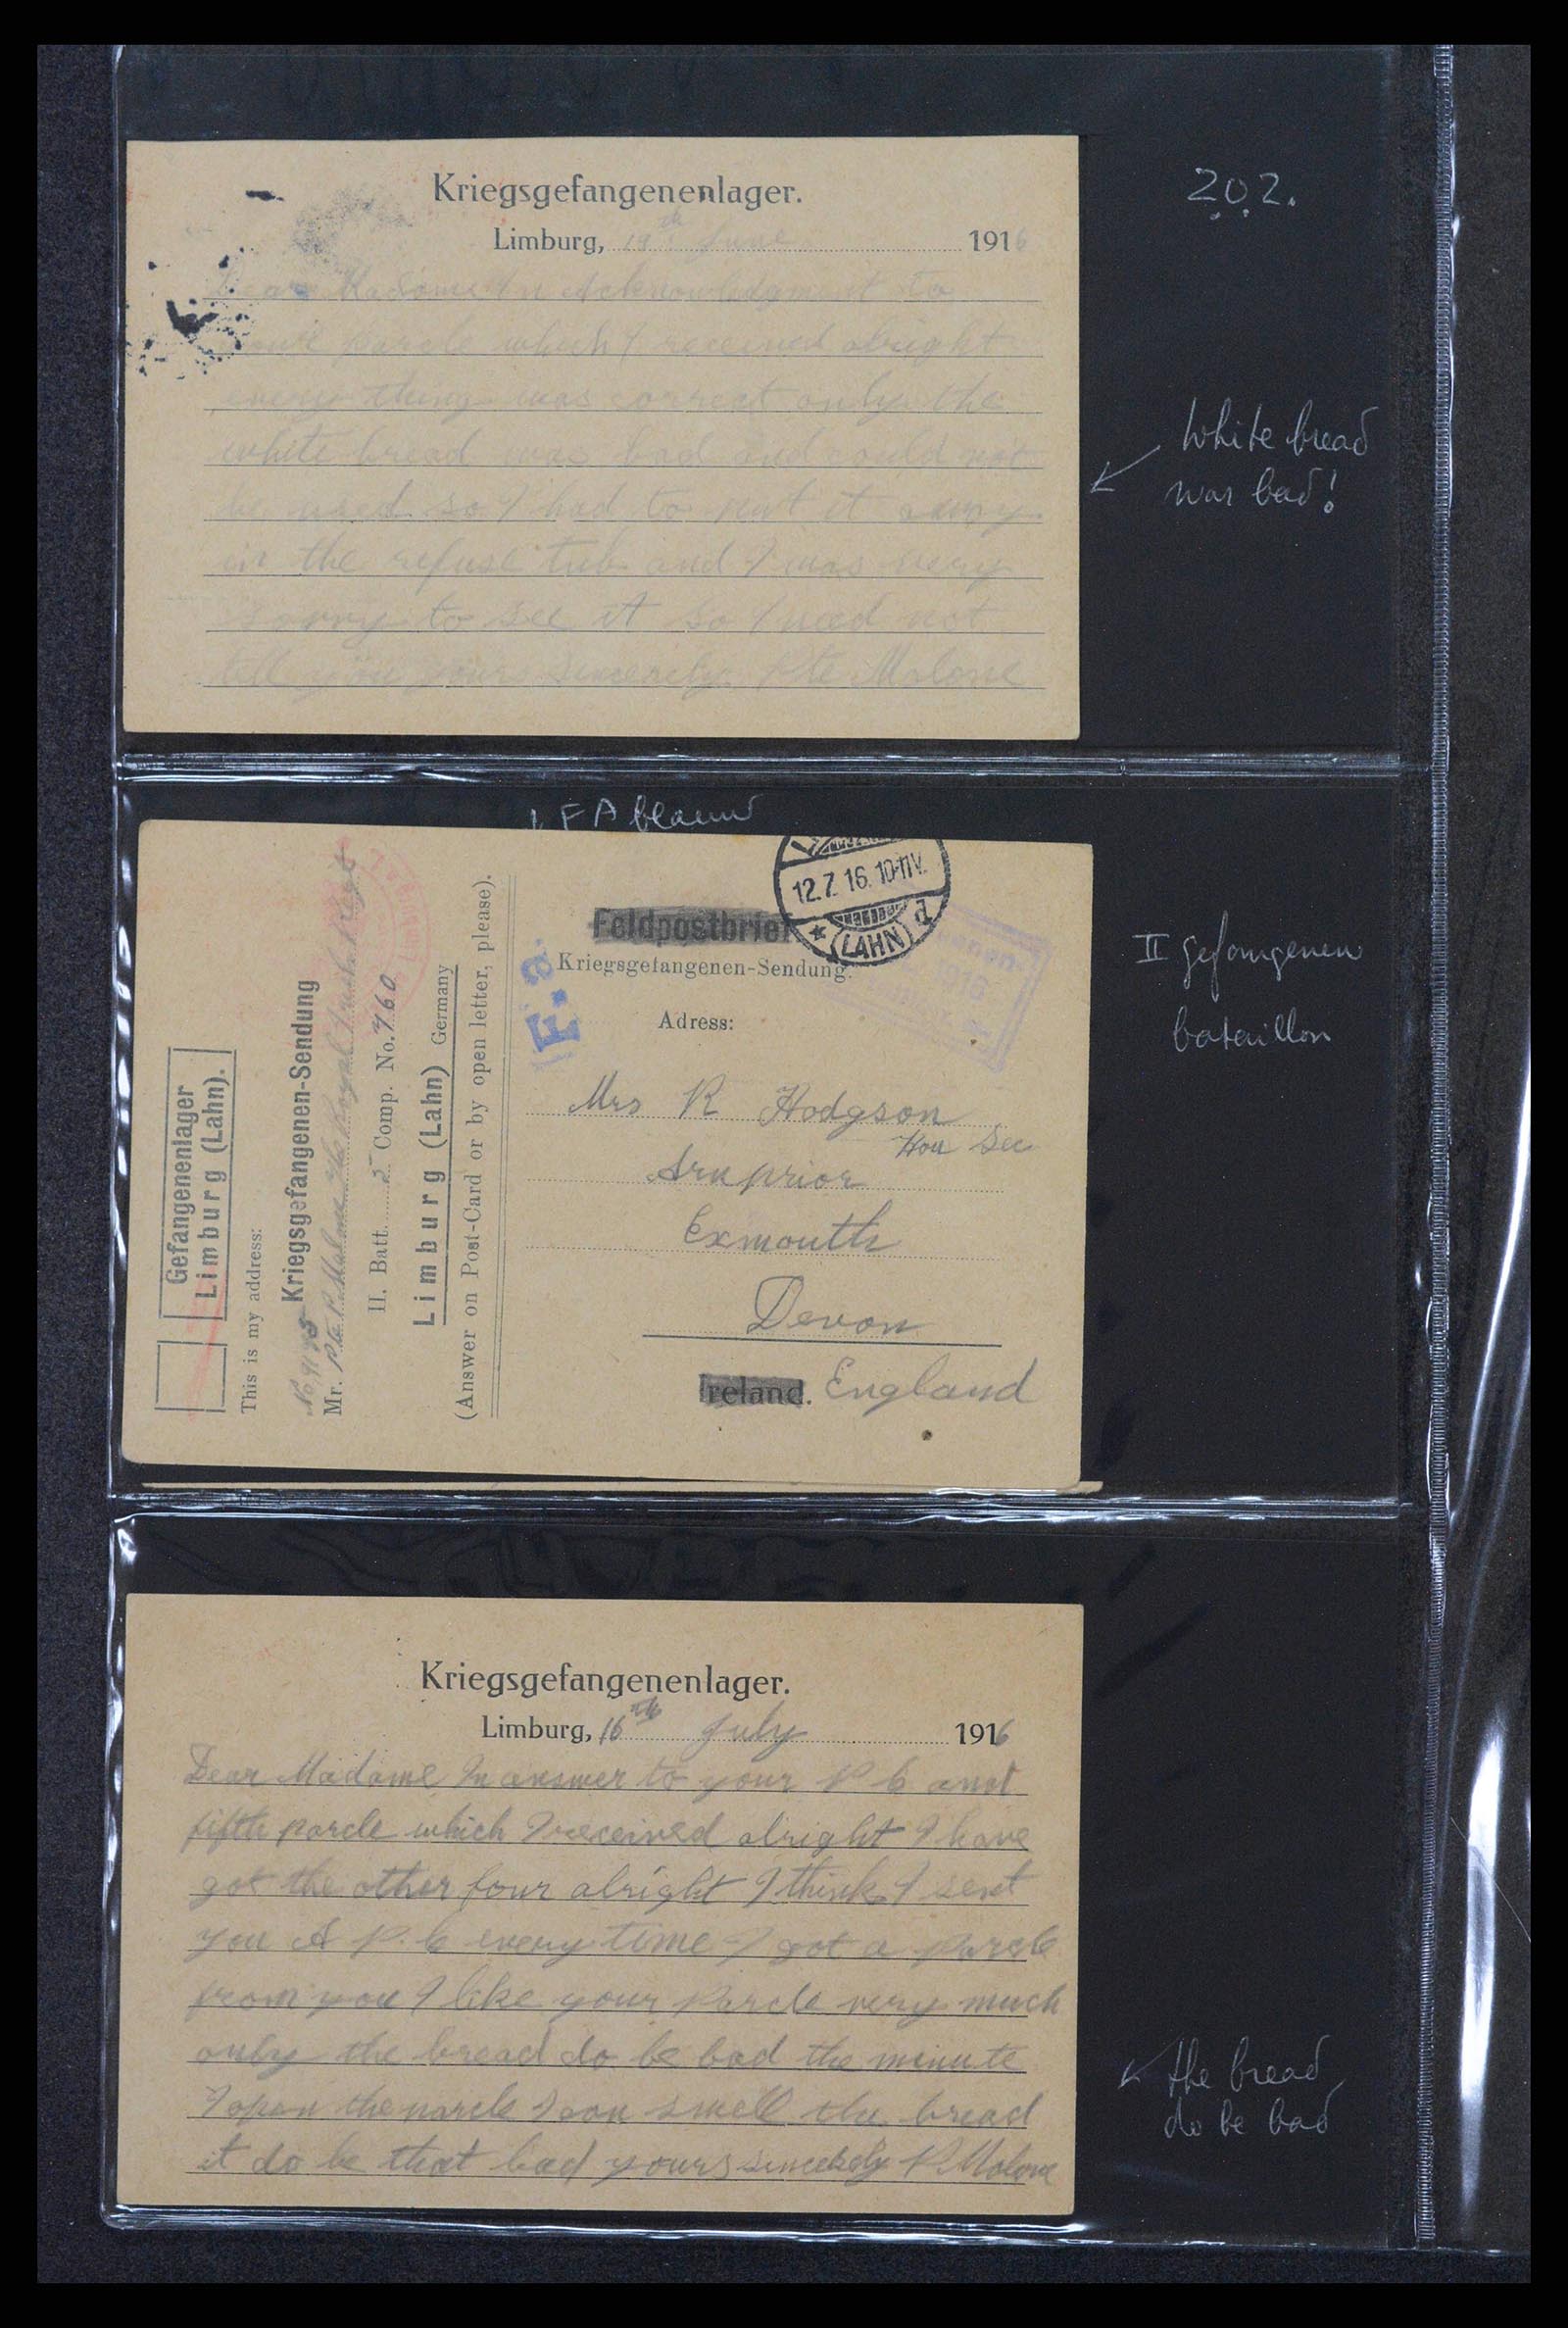 202.
Kriegsgefangenenlager.
Limburg, 19th June 1916
Dear Madame In Acknowledgment to
your parcle which I received alright
every thing was correct only the
white bread was bad and could not
be used so I had to put it away
in the refuse tub and I was very
sorry to see it so I need not
tell you yours sincerely Pte Malone
White bread
was bad!
F A blauw
Gefangenenlager
Limburg (Lahn).
This is my address:
Kriegsgefangenen-Sendung
Mr. Pte P. Malone The Royal Irish Regt
II. Batt. 2 Comp. No. 760
Limburg (Lahn) Germany
(Answer on Post-Card or by open letter, please).
Limburg
F.a.
12.7.16.10-11V.
(LAHN)
Feldpostbrief
Kriegsgefangenen-Sendung.
1916
Adress:
Mrs R Hodgson
Hon Sec
Arnprior
Exmouth
Devon
Ireland. England
II gefangenen
bataillon
Kriegsgefangenenlager.
Limburg, 16th July 1916
Dear Madame In answer to your P C and
fifth parcle which I received alright I have
got the other four alright I think I sent
you A P.C every time I got a parcle
from you I like your parcle very much
only the bread do be bad the minute
I open the parcle I can smell the bread
it do be that bad yours sincerely P. Malone
the bread
do be bad